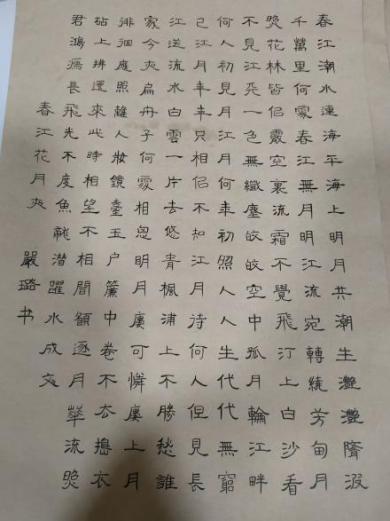 春江潮水連海平海上明月共潮生灧灧隨波
千萬里何處春江無月明江流宛轉繞芳甸月
照花林皆侣霰空裏流霜不覺飛汀上白沙看
不見江天一色無纖塵皎皎空中孤月輪江畔
何人初見月江月何年初照人人生代代無窮
已江月年年只相侣不知江月待何人但見長
江送流水白雲一片去悠青楓浦上不勝愁誰
家今夜扁舟子何處相思明月樓可憐樓上月
徘徊應照離人妝鏡臺玉户簾中卷不去搗衣
砧上拂還來此時相望不相聞願逐月華流照
君鴻雁長飛光不度魚龍潛躍水成文
春江花月夜
嚴璐书